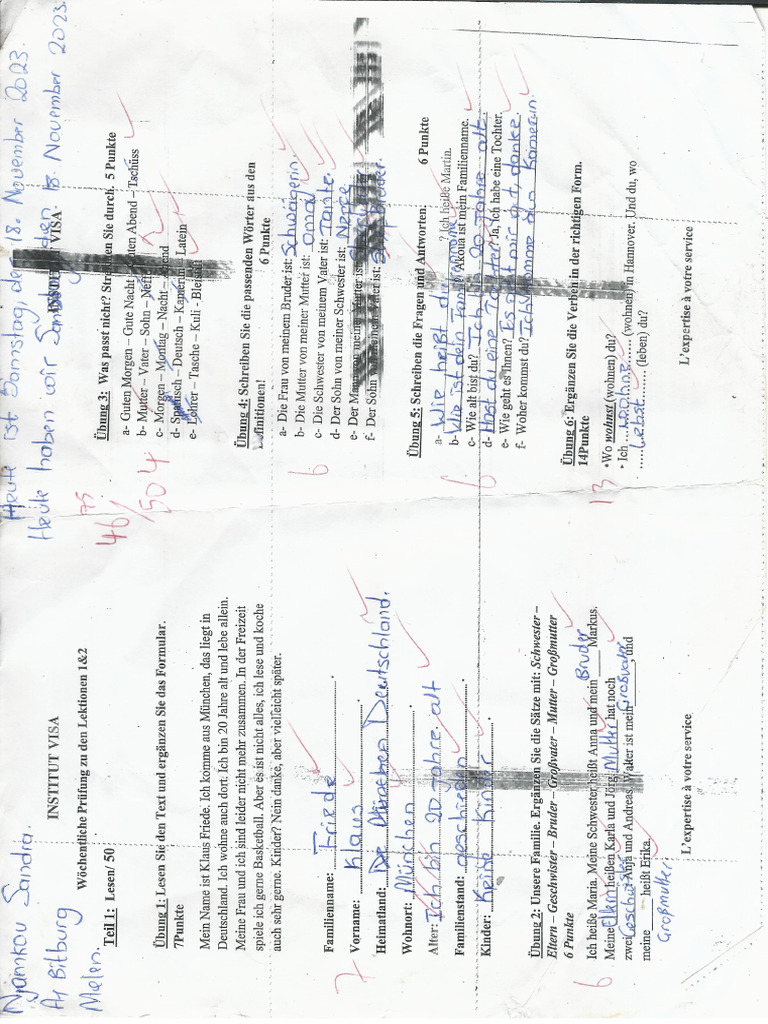 Njamkou Sandra.
A1 Bitburg
Melen.
INSTITUT VISA
Wöchentliche Prüfung zu den Lektionen 1&2
Teil 1: Lesen/ 50
Übung 1: Lesen Sie den Text und ergänzen Sie das Formular.
7Punkte
Mein Name ist Klaus Friede. Ich komme aus München, das liegt in
Deutschland. Ich wohne auch dort. Ich bin 20 Jahre alt und lebe allein.
Meine Frau und ich sind leider nicht mehr zusammen. In der Freizeit
spiele ich gerne Basketball. Aber es ist nicht alles, ich lese und koche
auch sehr gerne. Kinder? Nein danke, aber vielleicht später.
Familienname: Friede
Vorname: Klaus
Heimatland: Deutschland.
Wohnort: München
Alter: Ich bin 20 Jahre alt
Familienstand: geschieden
Kinder: Keine Kinder
7
Übung 2: Unsere Familie. Ergänzen Sie die Sätze mit: Schwester –
Eltern – Geschwister – Bruder – Großvater – Mutter – Großmutter
6 Punkte
6
Ich heiße Maria. Meine Schwester heißt Anna und mein Bruder Markus.
Meine Eltern heißen Karla und Jörg. Mutter hat noch
zwei Geschwister Anja und Andreas. Walter ist mein Großvater und
meine ____ heißt Erika.
Großmutter.
L'expertise à votre service
Heute ist Samstag, den 18. November 2023.
Heute haben wir Samstag den 18. November 2023.
INSTITUT VISA
46,75
/50
Übung 3: Was passt nicht? Streichen Sie durch. 5 Punkte
4
a- Guten Morgen – Gute Nacht – Guten Abend – Tschüss
b- Mutter – Vater – Sohn – Neffe
c- Morgen – Montag – Nacht – Abend
d- Spanisch – Deutsch – Kamerun – Latein
e- Lehrer – Tasche – Kuli - Bleistift
Übung 4: Schreiben Sie die passenden Wörter aus den
Definitionen! 6 Punkte
6
a- Die Frau von meinem Bruder ist: Schwägerin.
b- Die Mutter von meiner Mutter ist: oma
c- Die Schwester von meinem Vater ist: Tante.
d- Der Sohn von meiner Schwester ist: Neffe
e- Der Mann von meiner Mutter ist:
f- Der Sohn von meinem Vater ist:
Übung 5: Schreiben die Fragen und Antworten. 6 Punkte
6
a- Wie heißt du ? Ich heiße Martin.
b- Wie ist dein Familienname? Akoua ist mein Familienname.
c- Wie alt bist du? Ich bin 20 Jahre alt.
d- Hast du eine Tochter? Ja, ich habe eine Tochter.
e- Wie geht es Ihnen? Es geht mir gut, danke.
f- Woher kommst du? Ich komme aus Kamerun.
Übung 6: Ergänzen Sie die Verben in der richtigen Form.
14Punkte
13
•Wo wohnst (wohnen) du?
• Ich ....wohne...... (wohnen) in Hannover. Und du, wo
.....Lebst........ (leben) du?
L'expertise à votre service